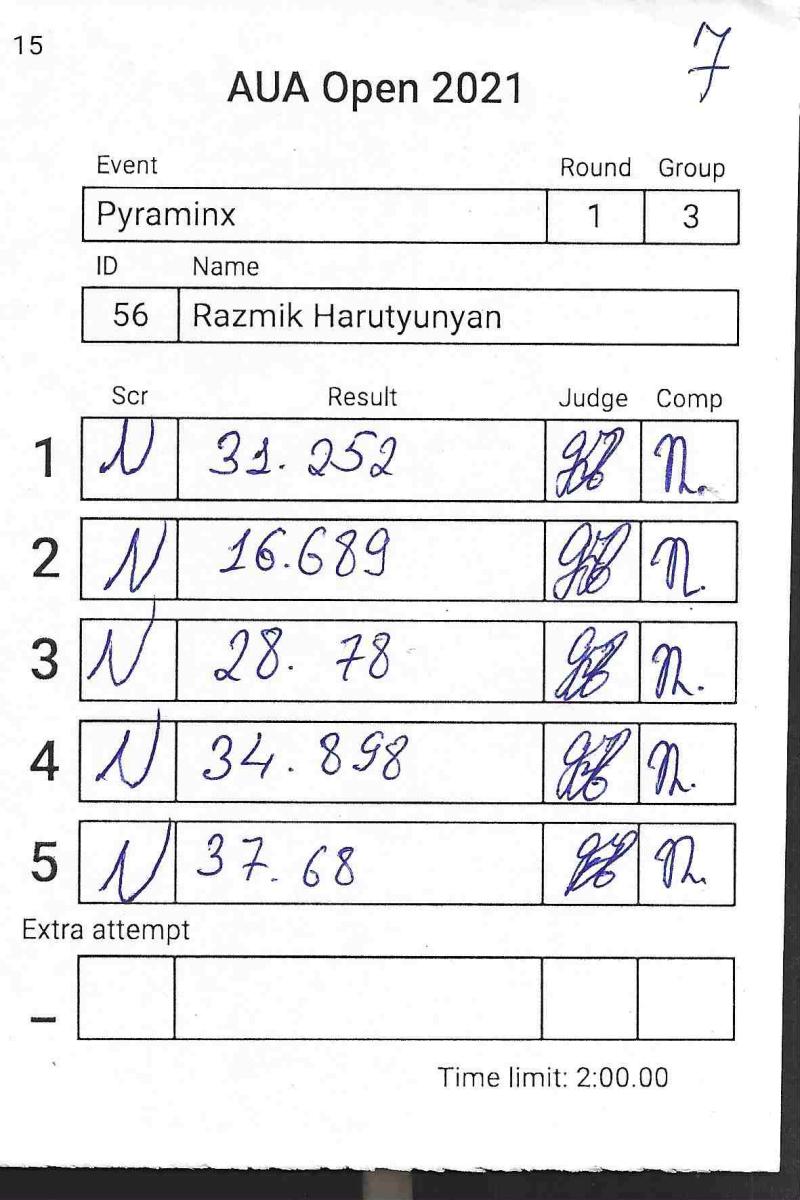 15
7
AUA Open 2021
Event Round Group
Pyraminx 1 3
ID Name
56 Razmik Harutyunyan
Scr Result Judge Comp
1 N 31.252
2 N 16.689
3 N 28.78
4 N 34.898
5 N 37.68
Extra attempt
–
Time limit: 2:00.00